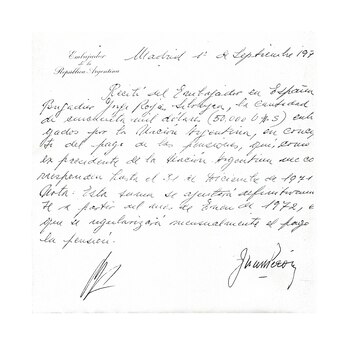 Embajador
de la
República Argentina
Madrid 1º de Septiembre 197
Recibí del Embajador en España
Brigadier Jorge Rojas Silveyra, la cantidad
de cincuenta mil dólares (50.000 U$S) ent
gados por la Nación Argentina, en conce
to del pago de las pensiones, que, como
ex presidente de la Nación Argentina me co
rresponden hasta el 31 de Diciembre de 1971
Nota: Esta suma se ajustará definitivamen
te a partir del mes de Enero de 1972, e
que se regularizará mensualmente el pago
la pensión.
Juan Perón